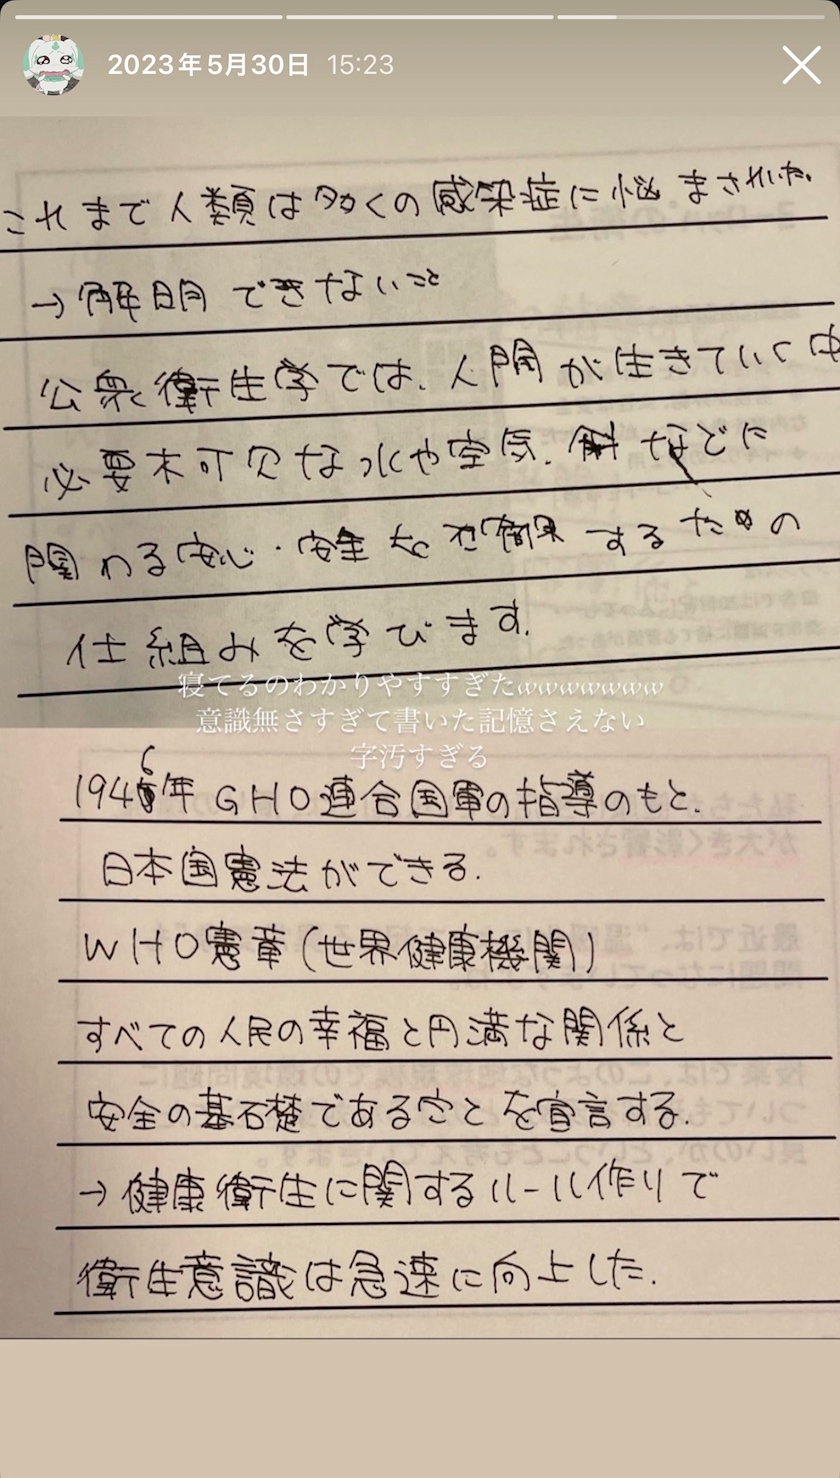 2023年5月30日 15:23
これまで人類は多くの感染症に悩まされいた。
→解明できないこと
公衆衛生学では、人間が生きていく中
必要不可欠な水や空気、 などに
関わる安心・安全を するための
仕組みを学びます。
寝てるのわかりやすすぎたwwwwwwww
意識無さすぎて書いた記憶さえない
字汚すぎる
1946年 GHO連合国軍の指導のもと、
日本国憲法ができる.
WHO憲章(世界健康機関)
すべての人民の幸福と円満な関係と
安全の基礎であることを宣言する.
→健康衛生に関するルール作りで
衛生意識は急速に向上した.